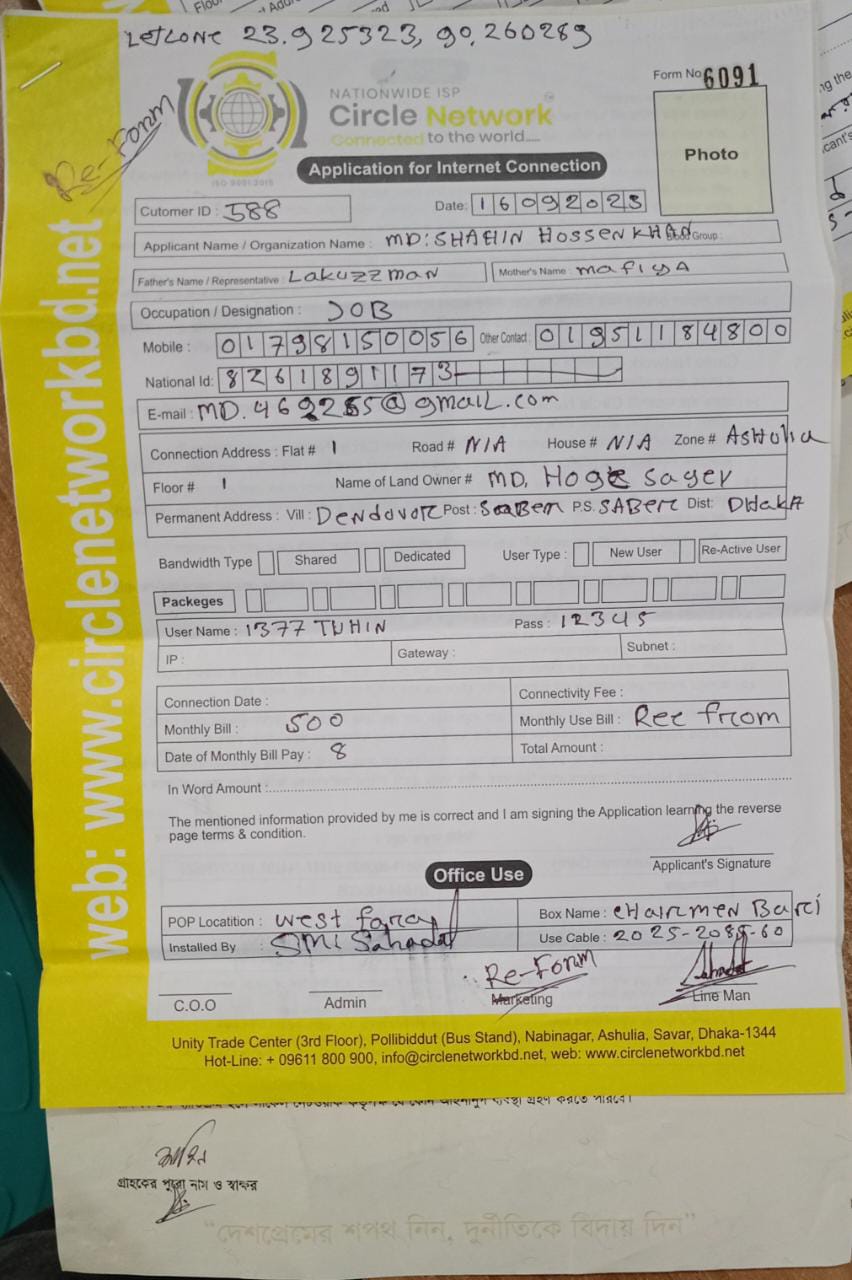 LetLone 23.925323, 90.260289
Form No 6091
NATIONWIDE ISP
Circle Network
Connected to the world....
Re-Form
ISO 9001:2015
Application for Internet Connection
Photo
Cutomer ID : 588
Date: 16092025
Applicant Name / Organization Name : MD: SHAHIN HOSSEN KHAN Blood Group :
Father's Name / Representative : Lakuzzman Mother's Name : mafiyA
Occupation / Designation : JOB
Mobile : 01798150056 Other Contact : 01951184800
National Id: 8261891173
E-mail : MD.469255@gmail.com
Connection Address : Flat # 1 Road # N/A House # N/A Zone # AsHulia
Floor # 1 Name of Land Owner # MD, Hoge sager
Permanent Address : Vill : Dendovor Post : SaBer P.S. SABER Dist: DHakA
Bandwidth Type Shared Dedicated User Type : New User Re-Active User
Packeges
User Name : 1377 TUHIN Pass : 12345
IP : Gateway : Subnet :
Connection Date : Connectivity Fee :
Monthly Bill : 500 Monthly Use Bill : Ree from
Date of Monthly Bill Pay : 8 Total Amount :
In Word Amount :
The mentioned information provided by me is correct and I am signing the Application learning the reverse
page terms & condition.
Applicant's Signature
Office Use
POP Locatition : west faraj Box Name : cHairmen Bari
Installed By : SMi Sahadat Use Cable : 2025-2085-60
Re-Form
C.O.O Admin Marketing Line Man
Unity Trade Center (3rd Floor), Pollibiddut (Bus Stand), Nabinagar, Ashulia, Savar, Dhaka-1344
Hot-Line: + 09611 800 900, info@circlenetworkbd.net, web: www.circlenetworkbd.net
web: www.circlenetworkbd.net
গ্রাহকের পুরো নাম ও স্বাক্ষর
“দেশপ্রেমের শপথ নিন, দুর্নীতিকে বিদায় দিন”